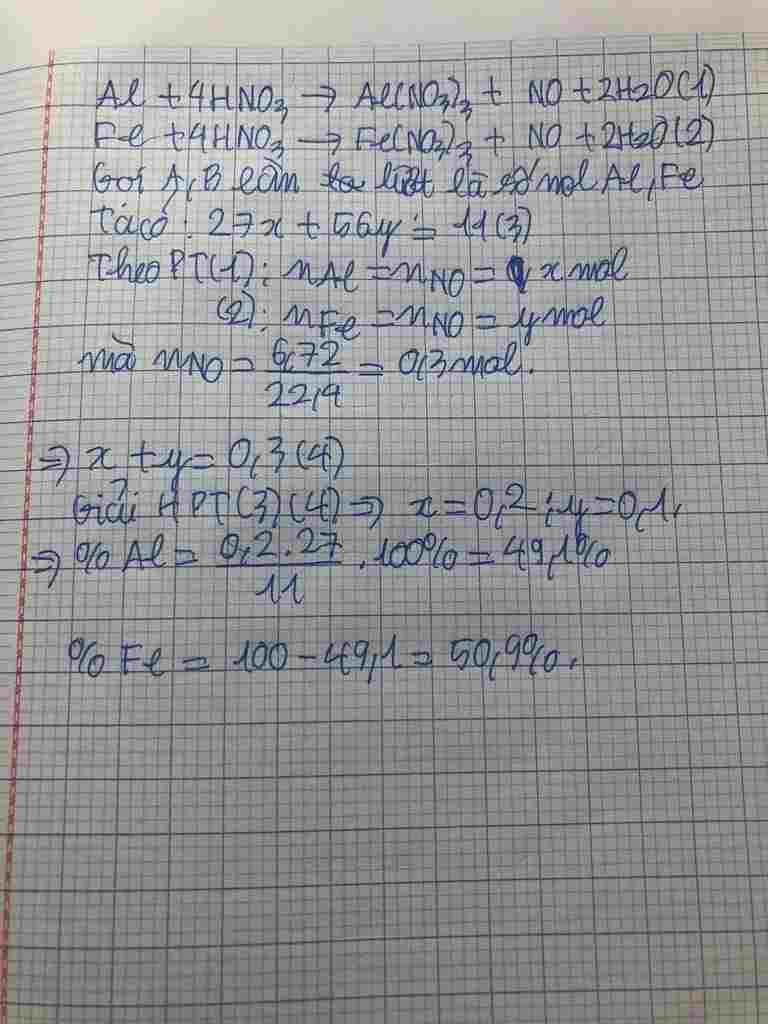 Al + 4HNO3 → Al(NO3)3 + NO + 2H2O (1)
Fe + 4HNO3 → Fe(NO3)3 + NO + 2H2O (2)
Gọi A, B lần lượt là số mol Al, Fe
Ta có: 27x + 56y = 11 (3)
Theo PT (1): nAl = nNO = x mol
(2): nFe = nNO = y mol
mà nNO = 6,72/22,4 = 0,3 mol.
⇒ x + y = 0,3 (4)
Giải HPT (3) (4) ⇒ x = 0,2; y = 0,1.
⇒ % Al = 0,2.27/11 . 100% = 49,1%
% Fe = 100 - 49,1 = 50,9%.